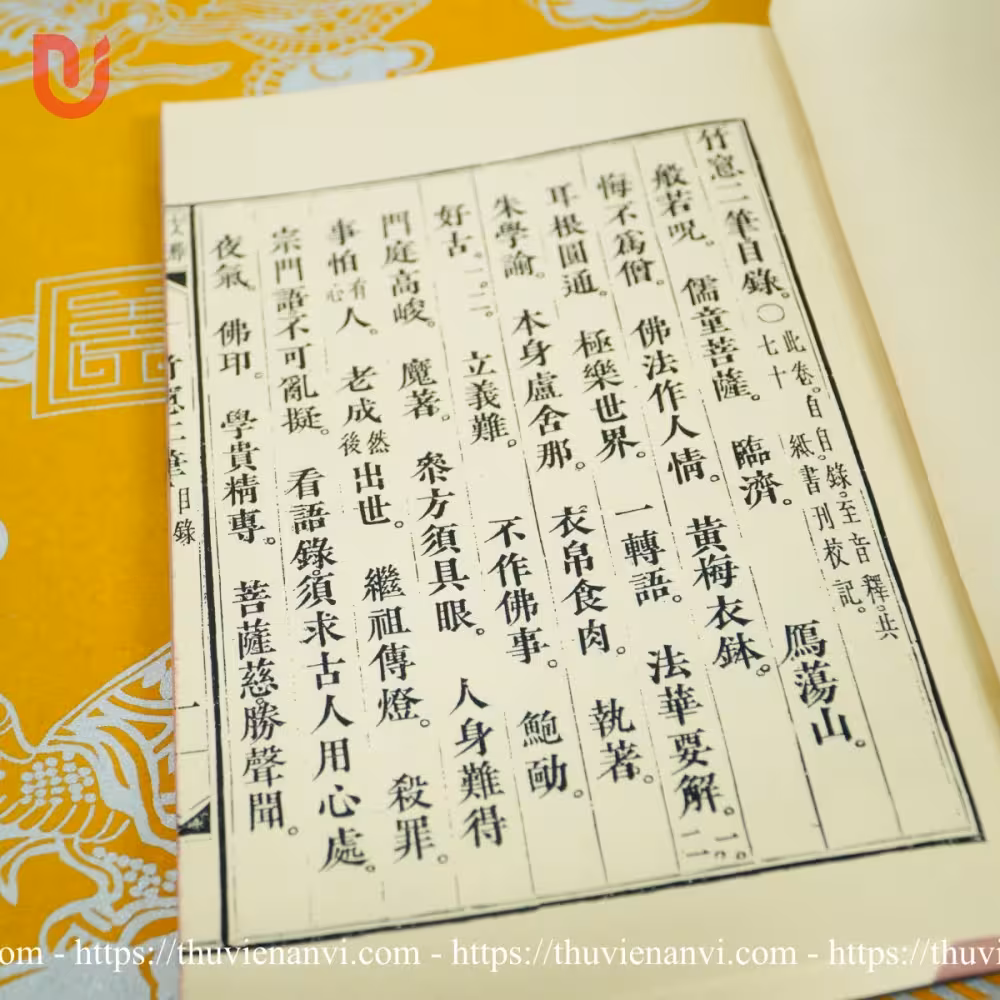 竹窻二筆目錄。〇此卷。自目錄。至音釋。共
七十紙書刊校記。
般若呪。 儒童菩薩。 臨濟。 鴈蕩山。
悔不爲僧。 佛法作人情。 黃梅衣鉢。
耳根圓通。 極樂世界。 一轉語。 法華要解。一。二
朱學諭。 本身盧舍那。 衣帛食肉。 執著。
好古。一。二。 立義難。 不作佛事。 鮑勔。
門庭高峻。 魔著。 叅方須具眼。 人身難得
事怕有心人。 老成然後出世。 繼祖傳燈。 殺罪。
宗門語不可亂擬。 看語錄。須求古人用心處。
夜氣。 佛印。 學貴精專。 菩薩慈。勝聲聞。
竹窻二筆 目錄 一
om - https://thuvienanvi.com - https://thuvienanvi.com - https://thuvi